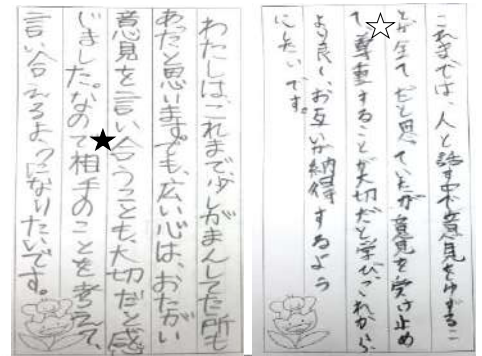 これまでは、人と話す中で意見をゆずるこ
とが全てだと思っていたが意見を受け止め
て尊重することが大切だと学び、これから
より良く、お互いが納得するよう
にしたいです。
わたしは、これまで少しがまんしてた所も
あったと思います。でも、広い心は、おたがい
意見を言い合うことも、大切だと感
じました。なので相手のことを考えて、
言い合えるようになりたいです。